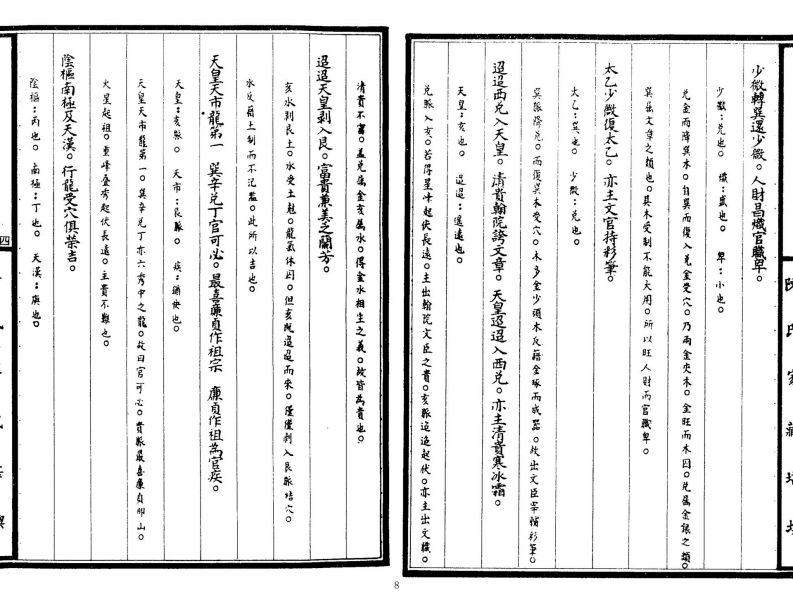 少微轉巽還少微。人財昌熾官職卑。
少微：兌也。熾：盛也。卑：小也。
兌金而降巽木。自巽而復入兌金受穴。乃兩金夾木。金旺而木囚。兌屬金銀之類。
巽為文章之類也。巽木受制不能大用。所以旺人財而官職卑。
太乙少微復太乙。亦主文官持彩筆。
太乙：巽也。少微：兌也。
巽脈降兌。而復巽木受穴。木多金少頑木反藉金琢而成器。故出文臣宰輔彩筆。
迢迢西兌入天皇。清貴翰院誇文章。天皇迢迢入西兌。亦主清貴寒冰霜。
天皇：亥也。迢迢：遠遠也。
兌脈入亥。若得星峰起伏長遠。主出翰院文臣之貴。亥脈迢迢起伏。亦主出文職。
清貴不富。蓋兌屬金亥屬水。得金水相生之義。故皆為貴也。
迢迢天皇剝入艮。富貴兼美之蘭芳。
亥水剝艮土。水受土尅。龍氣休囚。但亥既迢迢而來。僅僅剝入艮脈結穴。
水反藉土制而不氾濫。此所以吉也。
天皇天市龍第一　巽辛兌丁官可必。最喜廉貞作祖宗　廉貞作祖為官疾。
天皇：亥脈。天市：艮脈。疾：
天皇天市龍第一。巽辛兌丁亦六秀中之龍。故曰官可必。貴脈最喜廉貞
火星起祖。重峰叠秀起伏長遠。主貴不難也。
陰樞南極及天漢。行龍受穴俱榮吉。
陰樞：丙也。南極：丁也。天漢：庚也。
四
氏家藏
8